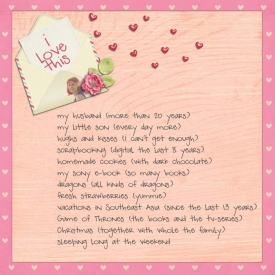 i
love
this
my husband (more than 20 years)
my little son (every day more)
hughs and kisses (i can't get enough)
scrapbooking (digital the last 8 years)
homemade cookies (with dark chocolate)
my sony e-book (so many books)
dragons (all kinds of dragons)
fresh strawberries (yummie)
vacations in Southeast Asia (since the last 13 years)
Game of Thrones (the books and the tv-series)
Christmas (together with whole the family)
sleeping long at the weekend